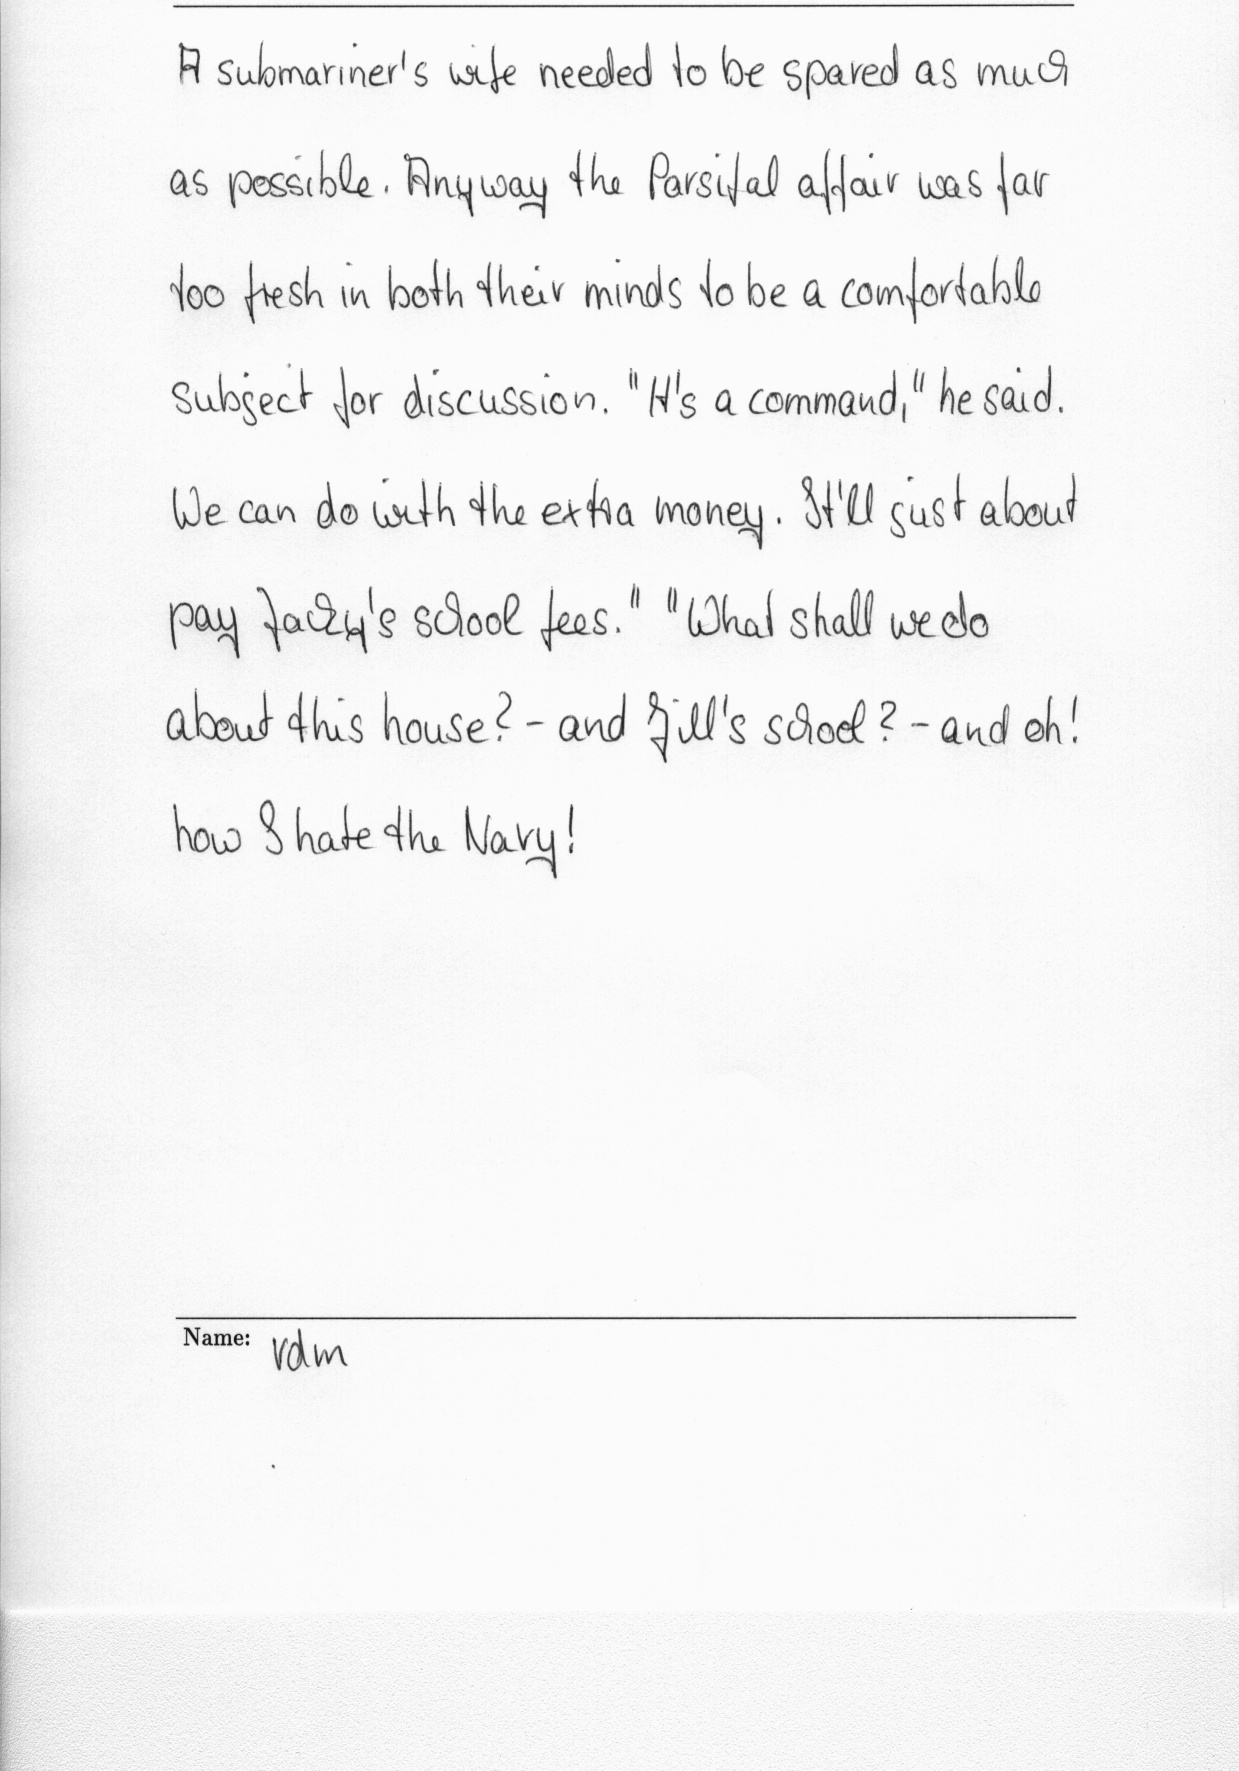 A submariner's wife needed to be spared as much
as possible. Anyway the Parsifal affair was far
too fresh in both their minds to be a comfortable
subject for discussion. "It's a command," he said.
We can do with the extra money. It'll just about
pay Jacky's school fees." "What shall we do
about this house? - and Jill's school? - and oh!
how I hate the Navy!
Name: vdm